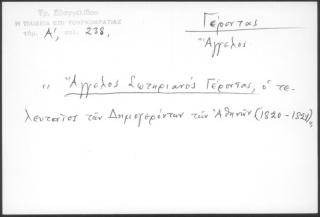 Τρ. Εὐαγγελίδου
Η ΠΑΙΔΕΙΑ ΕΠΙ ΤΟΥΡΚΟΚΡΑΤΙΑΣ
τόμ. Α΄, σελ. 238,
Γέροντας
Ἄγγελος
" Ἄγγελος Σωτηριανός Γέροντας, ὁ τε-
λευταῖος τῶν Δημογερόντων τῶν Ἀθηνῶν (1820-1821),